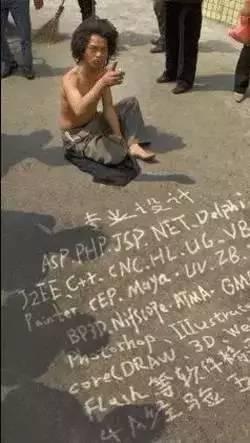 专业设计
ASP.PHP.JSP.NET.Delphi
J2EE.C++.CNC.HL.UG.VB
Painter.CEP.Maya.UV.ZB.
BP3D.
Photoshop、Illustrat
CorelDRAW、3D
Flash 等软件